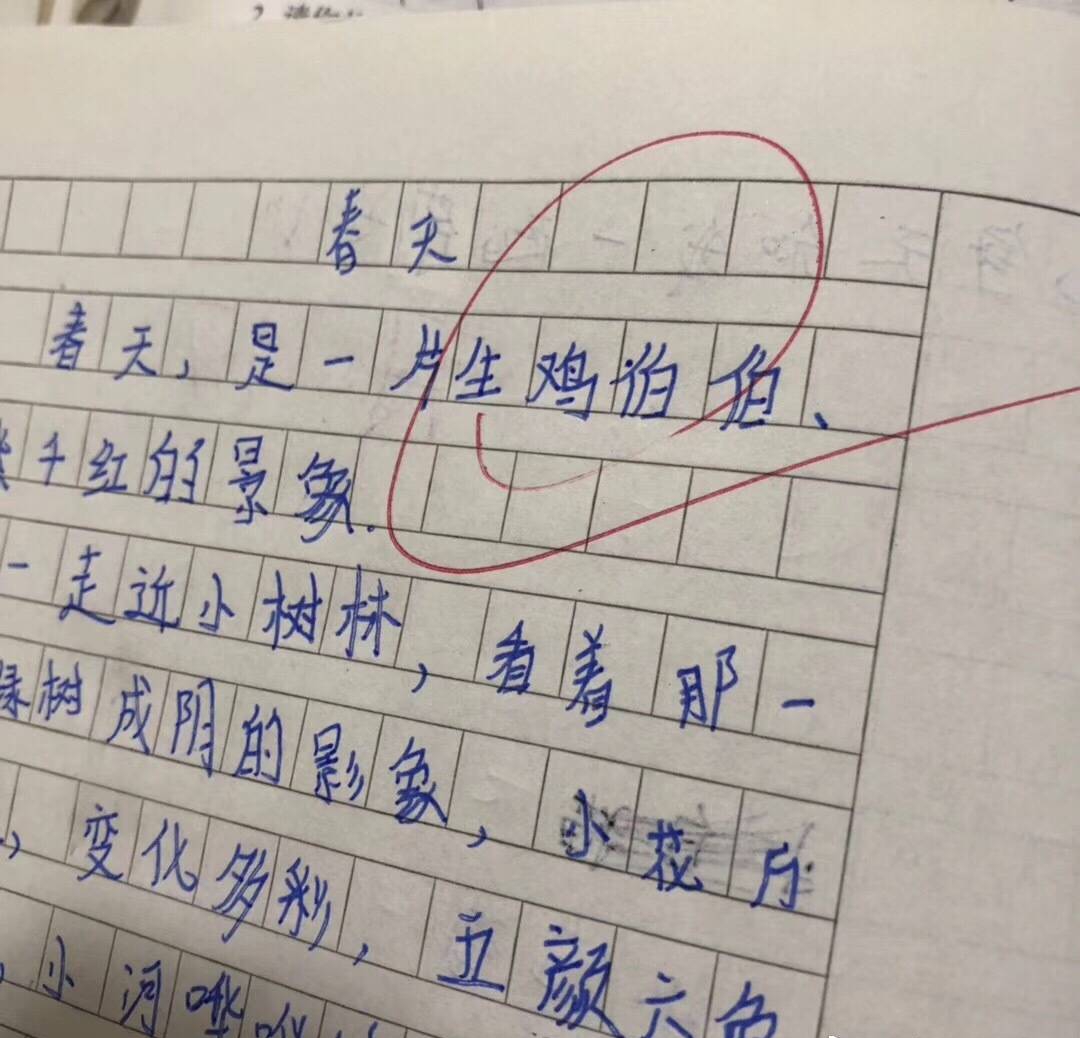 春天
春天，是一片生鸡伯伯、
千红的景象.
一走近小树林，看着那一
绿树成阴的影象，小花
，变化多彩，五颜六色
，小河哗